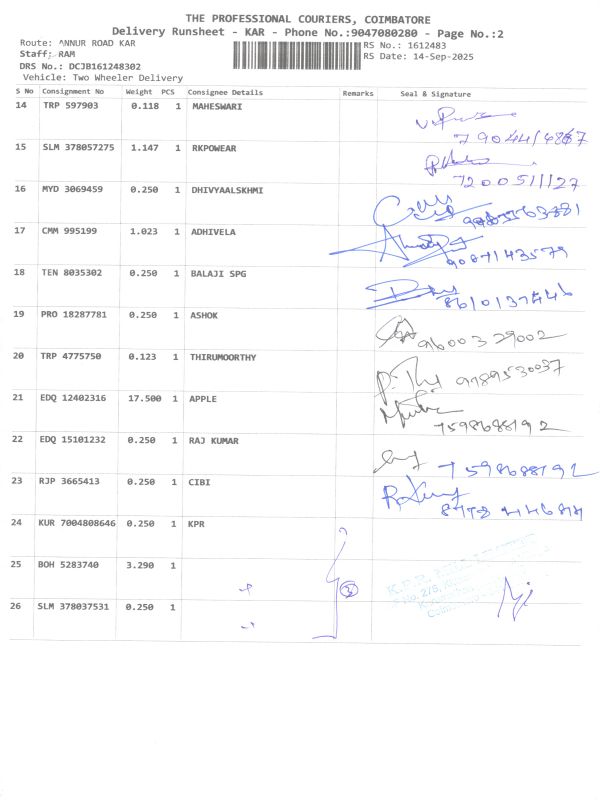 THE PROFESSIONAL COURIERS, COIMBATORE
Delivery Runsheet - KAR - Phone No.:9047080280 - Page No.:2
Route: ANNUR ROAD KAR
RS No.: 1612483
Staff: RAM
RS Date: 14-Sep-2025
DRS No.: DCJB161248302
Vehicle: Two Wheeler Delivery
S No Consignment No Weight PCS Consignee Details Remarks Seal & Signature
14 TRP 597903 0.118 1 MAHESWARI
15 SLM 378057275 1.147 1 RKPOWEAR
7200511127
16 MYD 3069459 0.250 1 DHIVYAALSKHMI
17 CMM 995199 1.023 1 ADHIVELA
9087143579
18 TEN 8035302 0.250 1 BALAJI SPG
8610137446
19 PRO 18287781 0.250 1 ASHOK
9600329002
20 TRP 4775750 0.123 1 THIRUMOORTHY
9789530037
21 EDQ 12402316 17.500 1 APPLE
7598688192
22 EDQ 15101232 0.250 1 RAJ KUMAR
7598688192
23 RJP 3665413 0.250 1 CIBI
24 KUR 7004808646 0.250 1 KPR
25 BOH 5283740 3.290 1
3
26 SLM 378037531 0.250 1